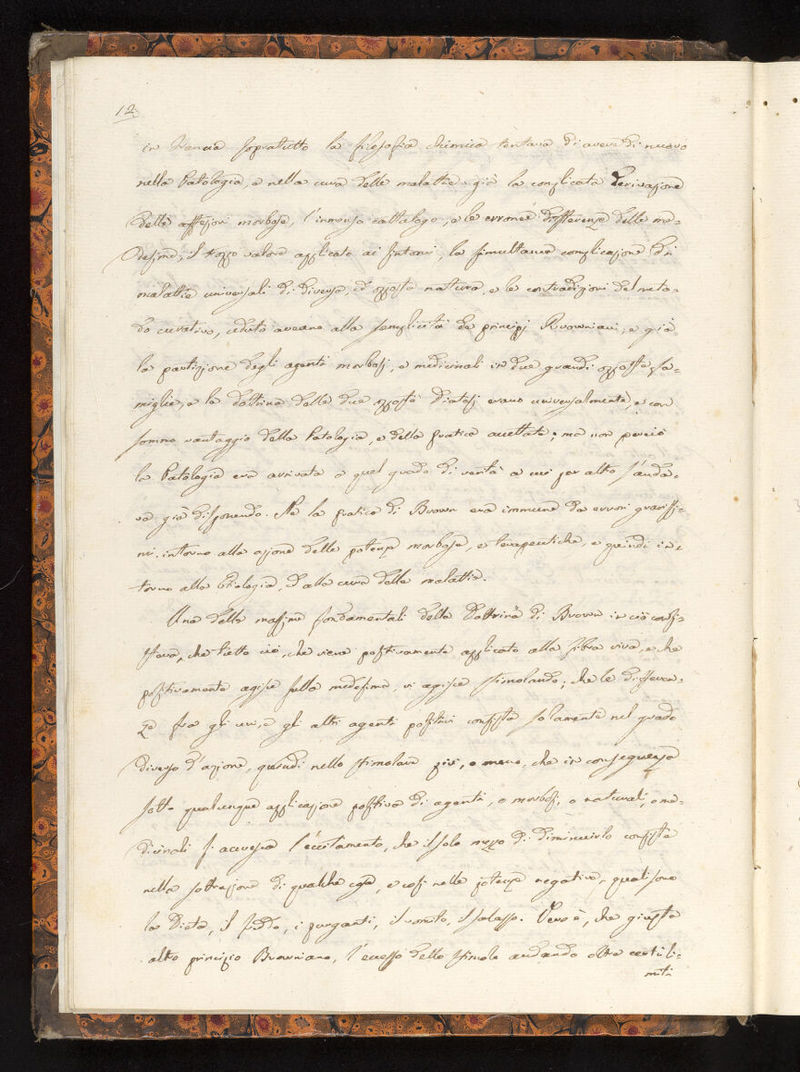 12.
in Francia sopratutto la filosofia chimica tentava di avere di nuovo
nella Patologia, e nella cura delle malattie già la complicata derivazione
delle affezioni morbose, l'immenso cattalogo, e le erronee differenze delle me-
desime, il troppo valore applicato ai sintomi, la simultanea complicazione di
malattie universali di diversa, ed opposta natura, e le contradizioni del meto-
do curativo, ceduto aveano alla semplicità de principj Browniani, e già
la partizione degli agenti morbosi, e medicinali in due grandi opposte fa-
miglie, e la dottrina delle due opposte Diatesi erano universalmente, e con
sommo vantaggio della Patologia, e della pratica accettate; ma non perciò
la Patologia era arrivata a quel grado di verità a cui per altro s'anda-
va già disponendo. Nè la pratica di Brown era immune da errori gravissi-
mi intorno alla azione delle potenze morbose, e terapeutiche, e quindi in-
torno alla Etiologia, ed alla cura delle malattie.
Una delle massime fondamentali della Dottrina di Brown in ciò consi-
steva, che tutto ciò, che viene positivamente applicato alla fibra viva, e che
positivamente agisce sulla medesima, vi agisce stimolando; che le differen-
ze fra gli uni, e gli altri agenti positivi consista solamente nel grado
diverso d'azione, quindi nello stimolare più, o meno, che in conseguenza
sotto qualunque applicazione positiva di agenti, o morbosi, o naturali, o me-
dicinali si accresca l'eccitamento, che il solo mezzo di diminuirlo consista
nella sottrazione di qualche cosa, e così nelle potenze negative, quali sono
la Dieta, il freddo, i purganti, il vomito, il salasso. Vero è, che giusta
altro principio Browniano, l'eccesso dello stimolo andando oltre certi li-
miti